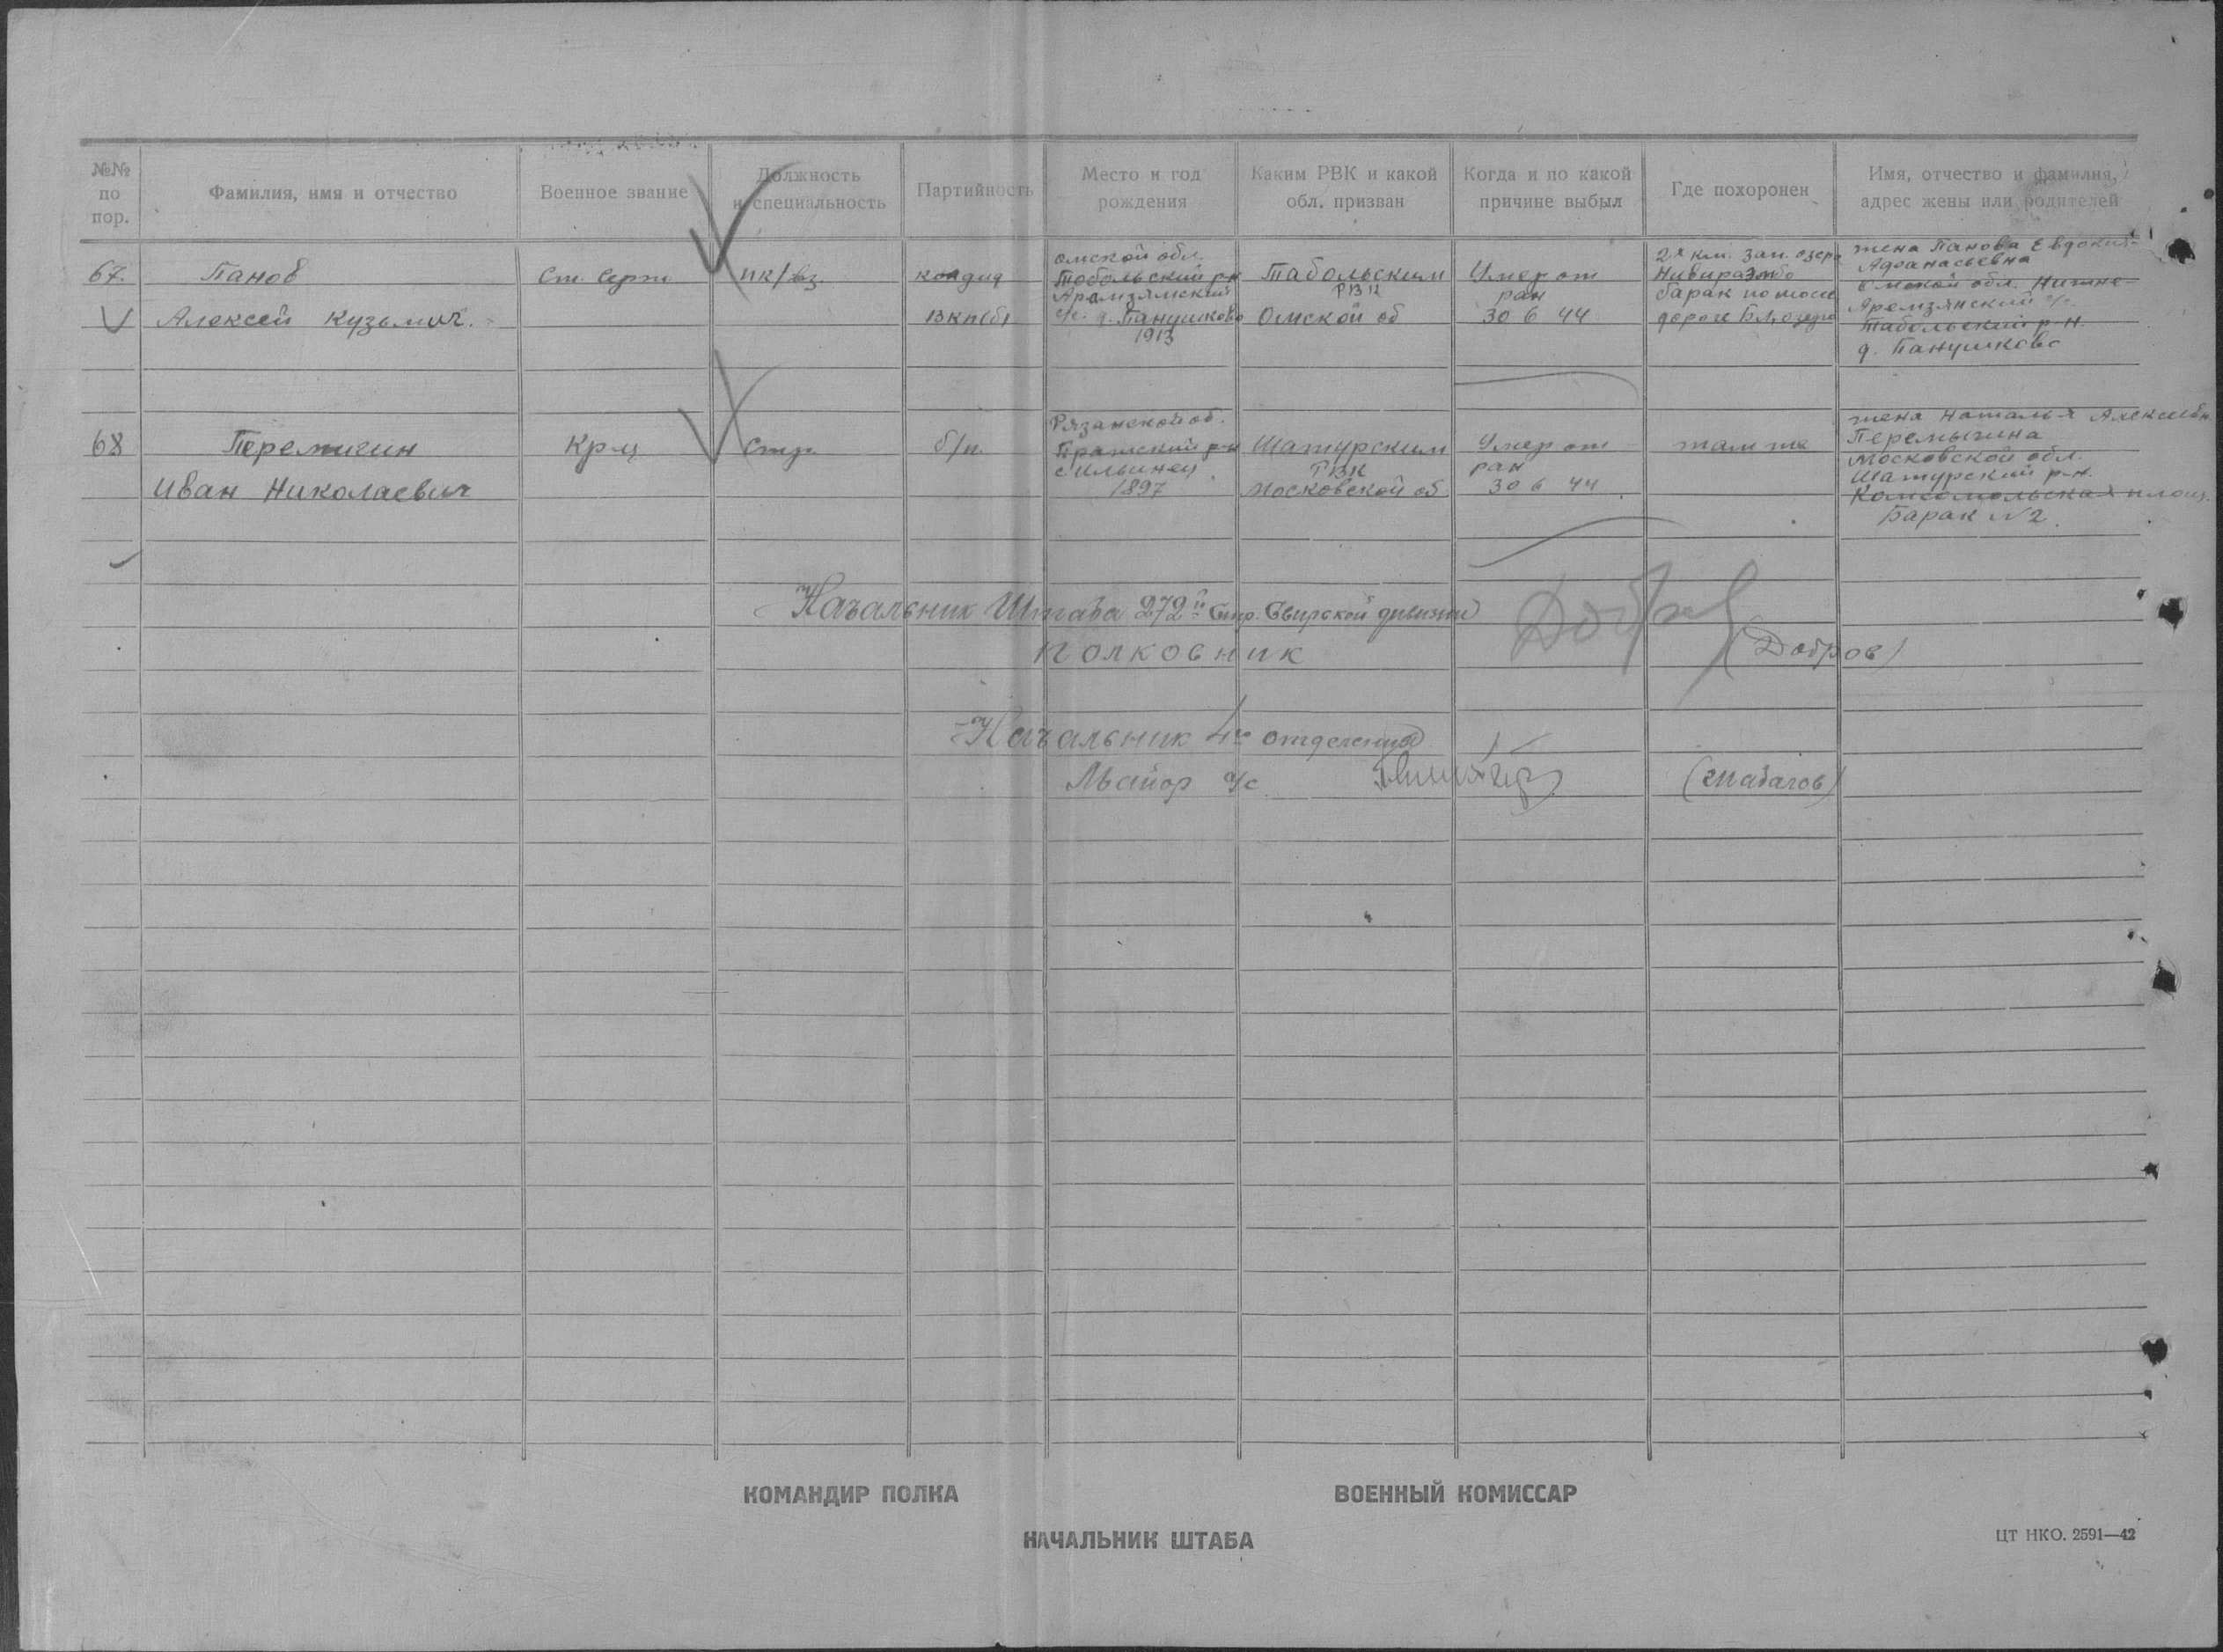 №№ по пор.
Фамилия, имя и отчество
Военное звание
Должность и специальность
Партийность
Место и год рождения
Каким РВК и какой обл. призван
Когда и по какой причине выбыл
Где похоронен
Имя, отчество и фамилия, адрес жены или родителей
67.
Панов
Алексей Кузьмич.
Ст. Серж
пк/вз.
кандид
ВКП(б)
Омской обл.
Тобольский р-н
Арамзямский
с/с. д. Панушково
1913
Табольским
РВК
Омской об
Умер от
ран
30 6 44
2 км. зап. озера
барак по
дороге
жена Панова Евдокия
Афанасьевна
Омской обл. Нижне-
Аремзянский с/с.
Табольский р-н.
д. Панушково
68
Перемыгин
Иван Николаевич
Кр-ц
Стр.
б/п.
Рязанской об.
р-н
с Ильинец
1897
Шатурским
РВК
Московской об
Умер от
ран
30 6 44
там же
жена Наталья Алексеевн
Перемыгина
Московской обл.
Шатурский р-н.
Комсомольская площ.
Барак №2.
Начальник Штаба 272й Стр. Свирской дивизии
полковник
(Добров)
Начальник 4го отделения
Майор а/с
КОМАНДИР ПОЛКА
ВОЕННЫЙ КОМИССАР
НАЧАЛЬНИК ШТАБА
ЦТ НКО. 2591—42